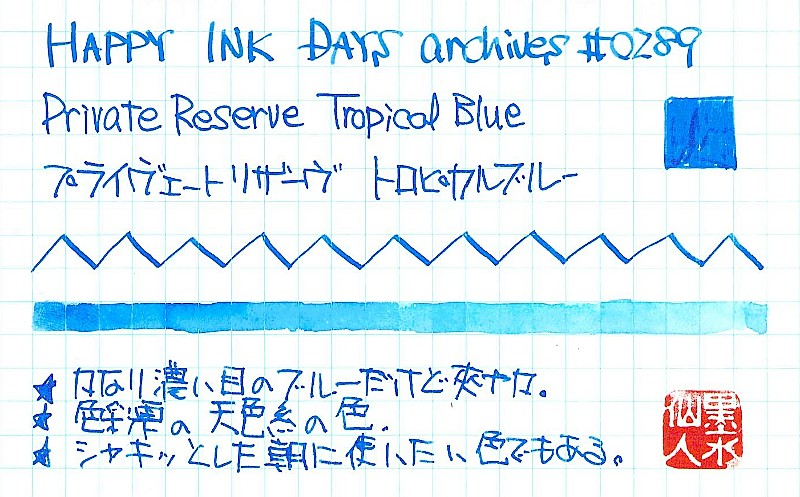 HAPPY INK DAYS archives #0289
Private Reserve Tropical Blue
プライヴェートリザーヴ トロピカルブルー
★ かなり濃い目のブルーだけど爽やか。
★ 色彩雫の天色系の色.
★ シャキッとした朝に使いたい色でもある。
墨水仙人